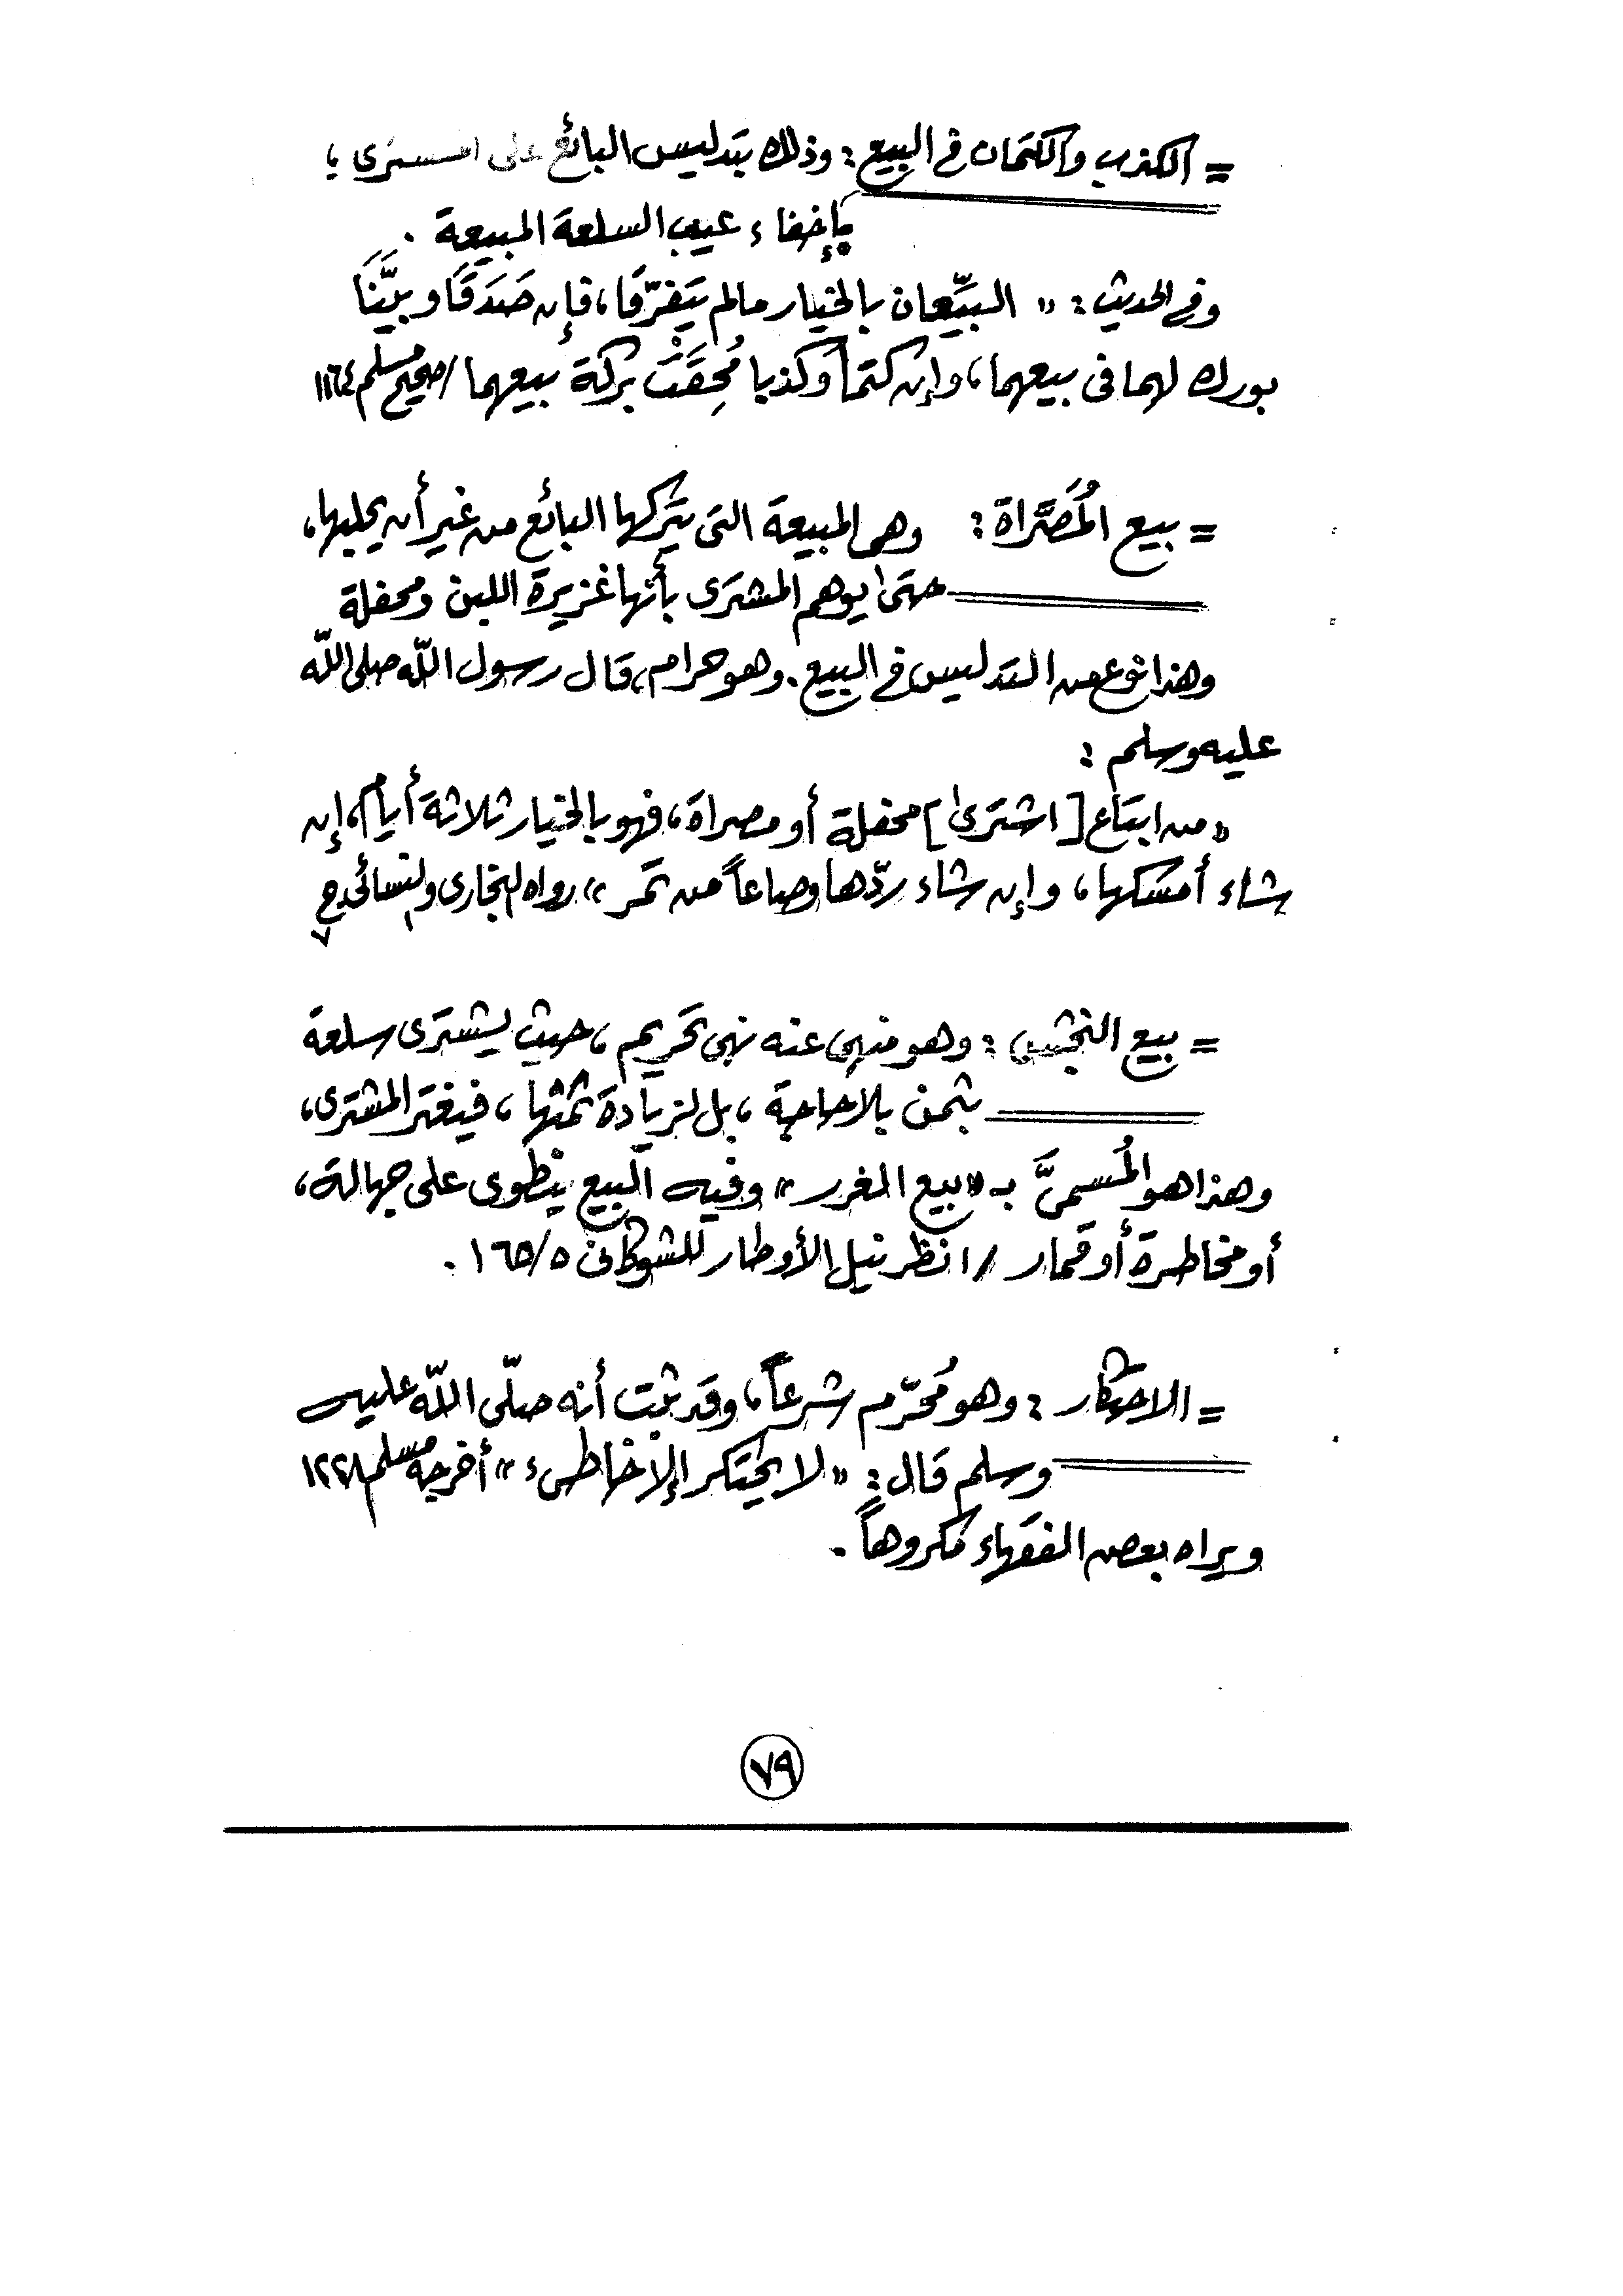 = الكذب والكتمان في البيع : وذلك بتدليس البائع على المشترى ؛
بإخفاء عيب السلعة المبيعة .
وفي الحديث : « البيِّعان بالخيار مالم يتفرّقا ، فإن صَدَقَا وبيَّنَا
بورك لهما فى بيعهما ، وإن كتما وكذبا مُحِقَتْ بركة بيعهما / صحيح مسلم ١١٦٤
= بيع المُصَرَّاة : وهى المبيعة التى يتركها البائع من غير أن يحلبها ،
حتى يوهم المشترى بأنها غزيرة اللبن ومحفلة
وهذا نوع من التدليس في البيع . وهو حرام ، قال رسول اللّه صلى اللّه
عليه وسلم :
« من ابتاع [ اشترى ] محفلة أو مصراة ، فهو بالخيار ثلاثة أيام ، إن
شاء أمسكها ، وإن شاء ردّها وصاعاً من تمر » رواه البخارى والنسائى ج
٧
= بيع النجش : وهو منهى عنه نهى تحريم ، حيث يشترى سلعة
بثمن بلا حاجة ، بل لزيادة ثمنها ، فيغتر المشترى ،
وهذا هو المُسمىَّ بـ « بيع الغرر » وفيه البيع ينطوى على جهالة ،
أو مخاطرة أو قمار / انظر نيل الأوطار للشوكانى ١٦٥/٥ .
= الاحتكار : وهو مُحرّم شرعاً ، وقد ثبت أنه صلّى اللّه عليه
وسلم قال : « لا يحتكر إلا خاطىء » أخرجه مسلم ١٢٢٨
ويراه بعض الفقهاء مكروهاً .
٧٩